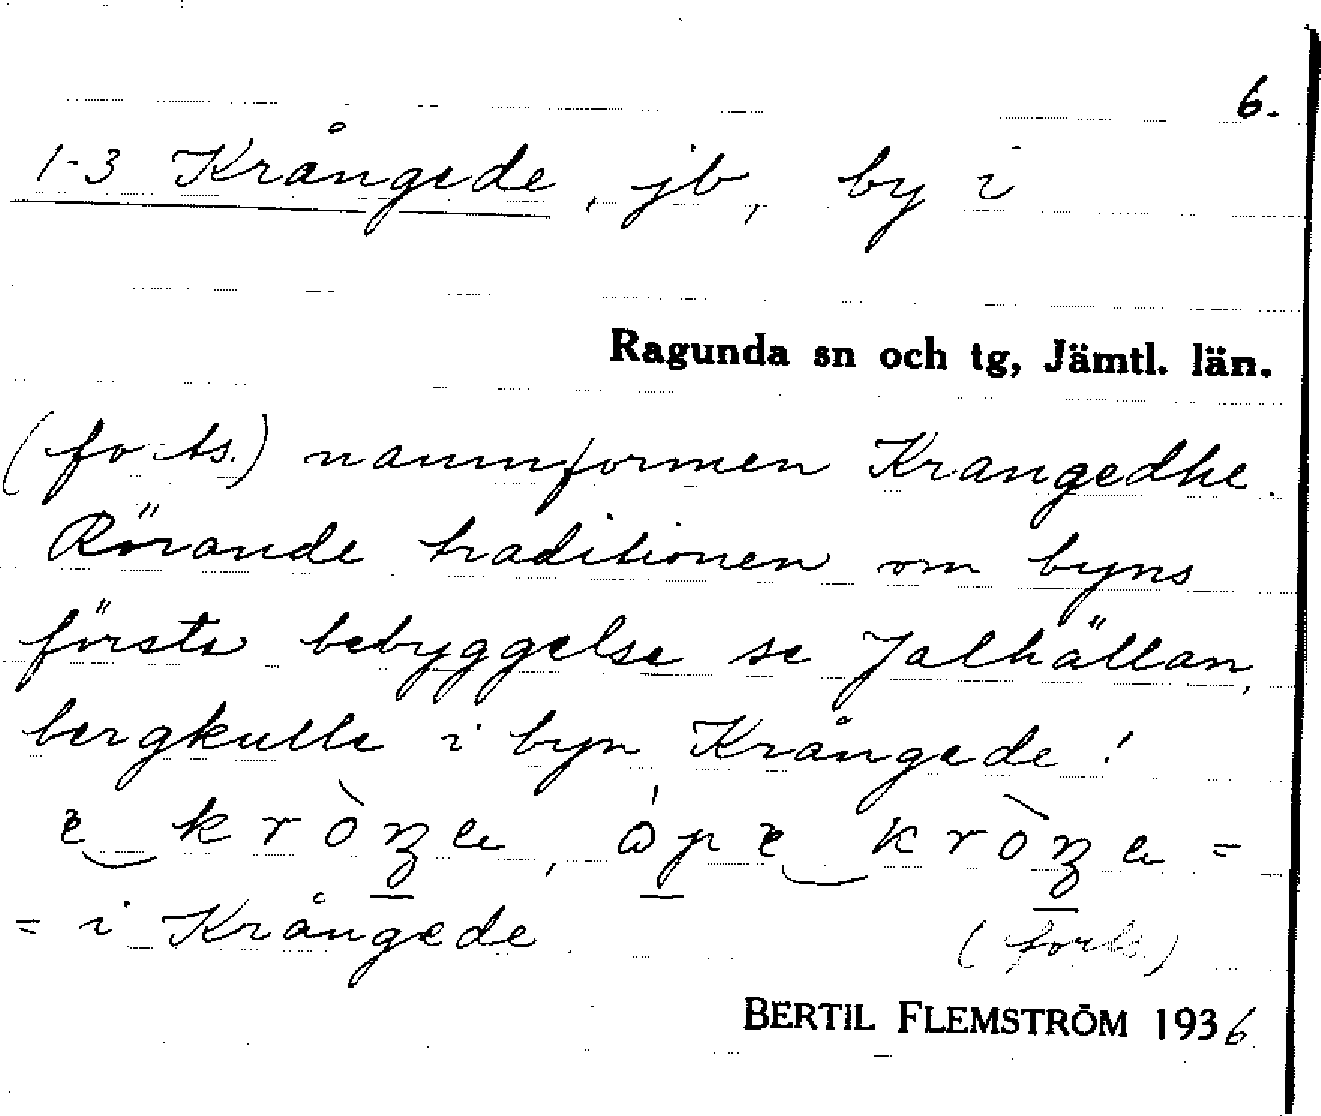 6.
1-3 Krångede, jb, by i
Ragunda sn och tg, Jämtl. län.
(forts.) namnformen Krangedhe.
Rörande traditionen om byns
första bebyggelse se Jalhällan,
bergkulle i byn Krångede!
= i Krångede. (forts.)
BERTIL FLEMSTRÖM 1936